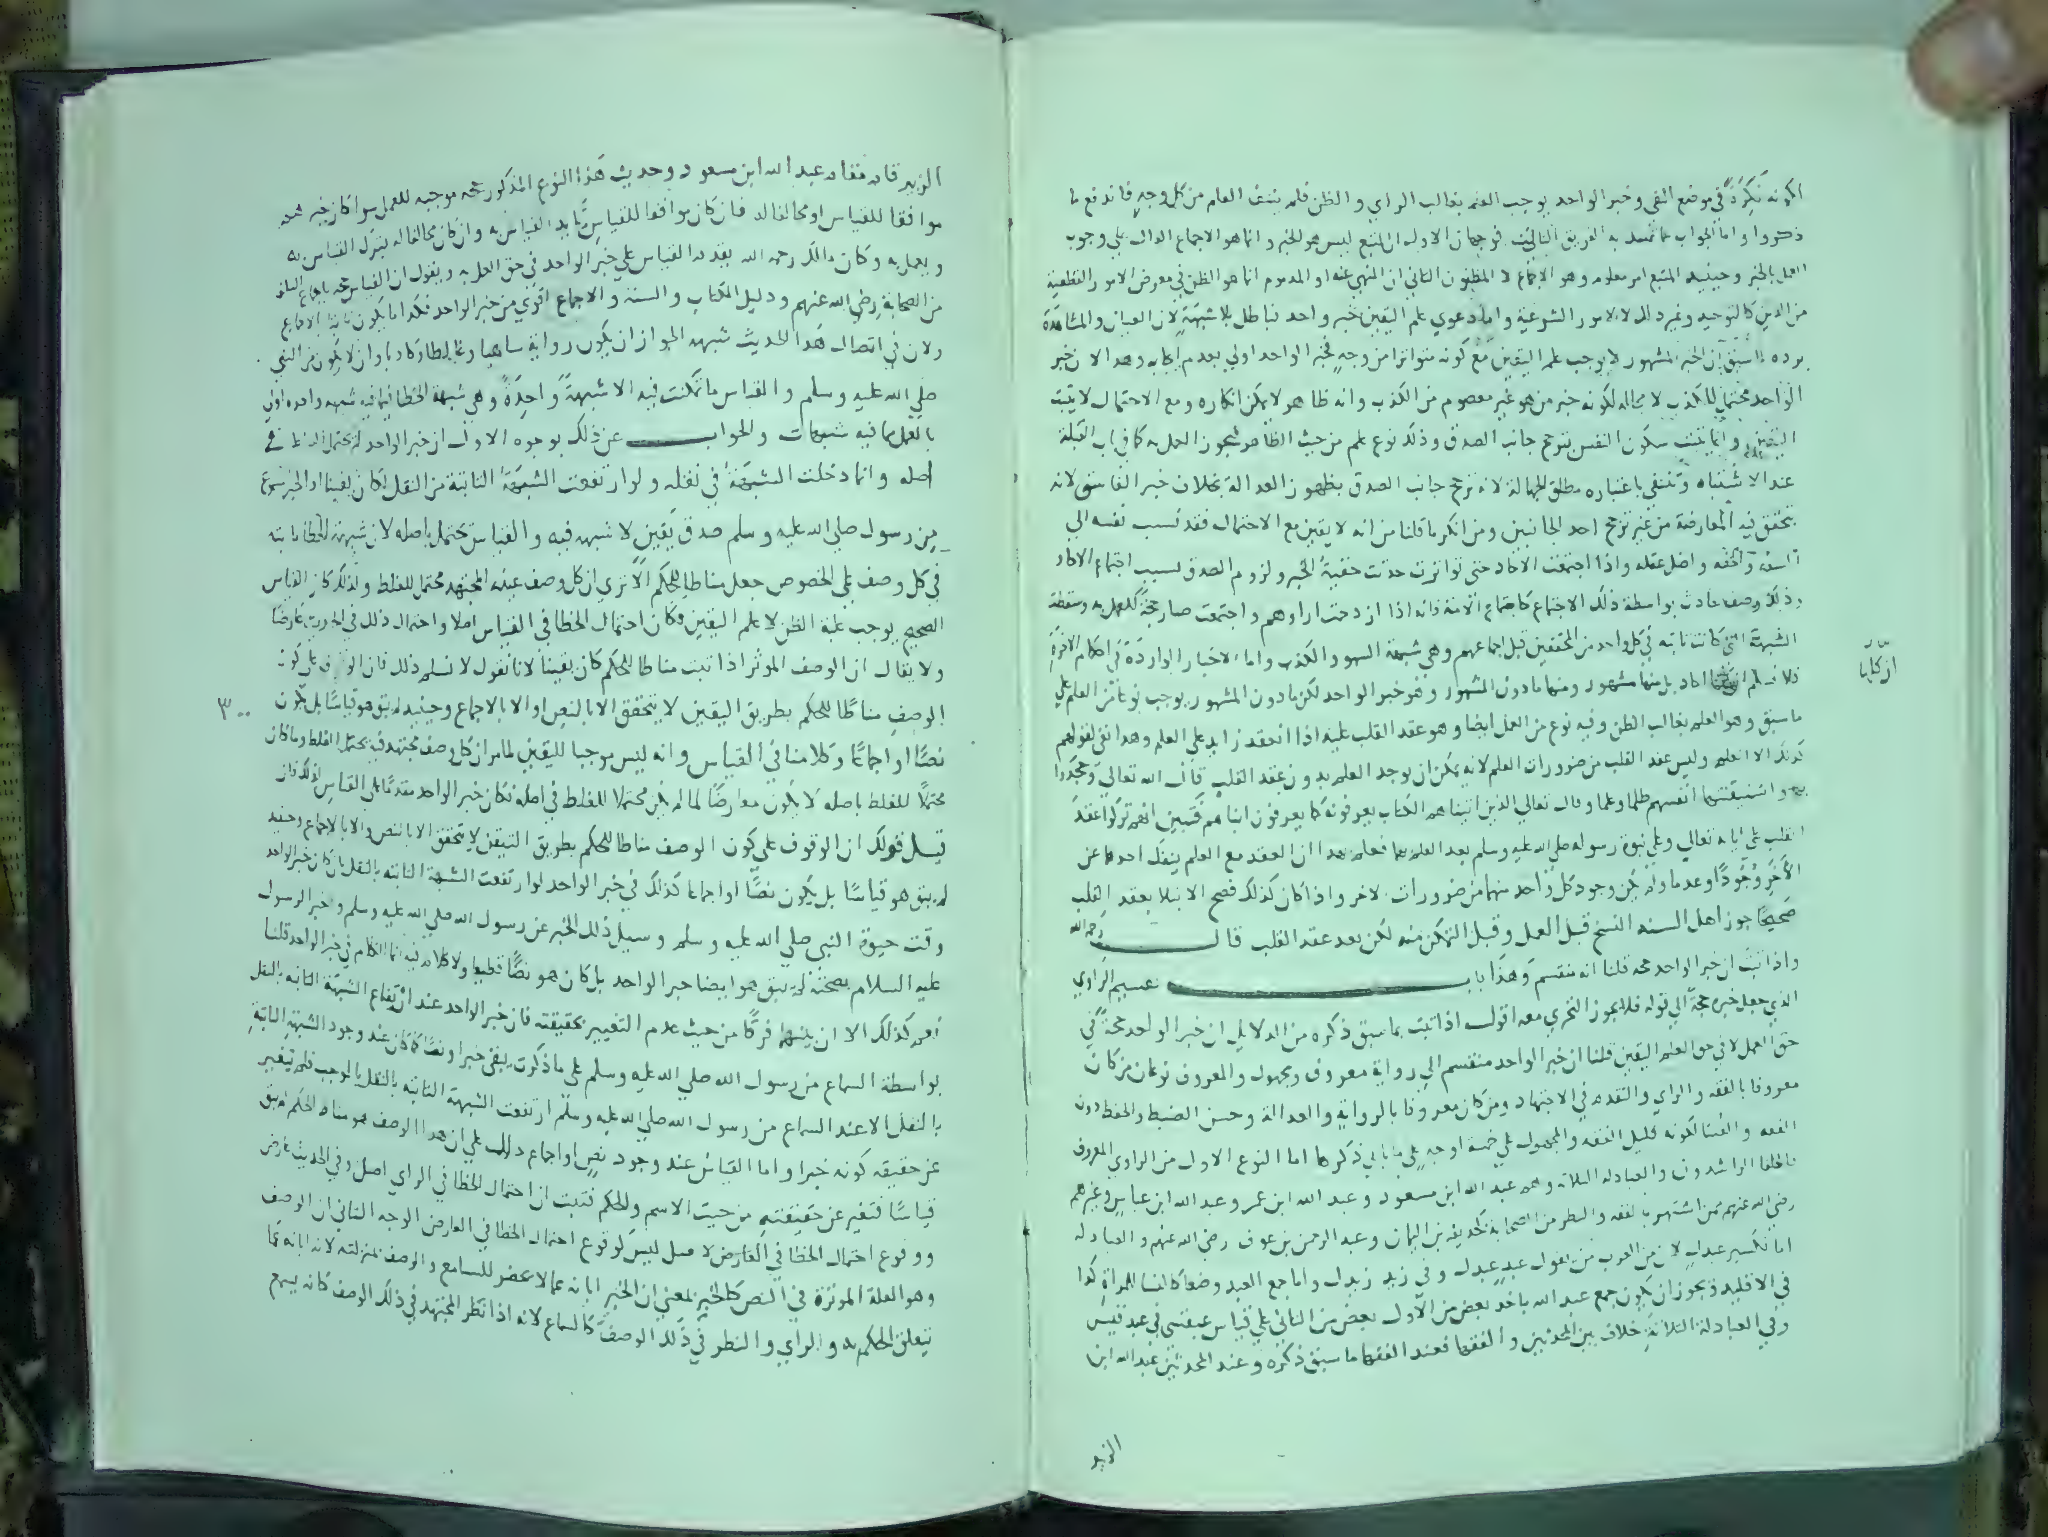 لكونه نكرة في موضع النفي وخبر الواحد يوجب العلم بغالب الراي والظن فلم ينتف العلم من كل وجه فاندفع ما
ذكروا واما الجواب عما تمسك به الفريق الثاني فوجهان الاول ان المتبع ليس هو الخبر وانما هو الاجماع الدال علي وجوب
العمل بالخبر وحينيذ المتبع امر معلوم وهو الاجماع لا المظنون الثاني ان المنهي عنه او المذموم انما هو الظن في معرض الامور القطعية
من الدين كالتوحيد وغير ذلك لا الامور الشرعية واما دعوي علم اليقين خبر واحد فباطل بلا شبهة لان العيان والمشاهدة
يرده لما سبق ان الخبر المشهور لا يوجب علم اليقين مع كونه متواترا من وجه فخبر الواحد اولي بعدم ايجابه وهذا لان خبر
الواحد محتمل للكذب لا محالة لكونه خبر من هو غير معصوم من الكذب وانه ظاهر لا يمكن انكاره ومع الاحتمال لا يثبت
اليقين وانما يثبت سكون النفس بترجح جانب الصدق وذلك نوع علم من حيث الظاهر فيجوز العمل به كما في باب القبلة
عند الاشتباه وينتفي باعتباره مطلق الجهالة لانه ترجح جانب الصدق بظهور العدالة بخلاف خبر الفاسق لانه
تتحقق فيه المعارضة من غير ترجح احد الجانبين ومن انكر ما قلنا من انه لا يقين مع الاحتمال فقد نسب نفسه الي
السفه واضل عقله واذا اجتمعت الاحاد حتى تواترت حدثت حقية الخبر ولزوم الصدق لسبب اجتماع الاحاد
وذلك وصف حادث بواسطة ذلك الاجتماع كاجتماع الامة فانه اذا ازدحمت اراوهم واجتمعت صار حجة للعمل به وسقطت
الشبهة التي كانت ثابتة في كل واحد من المتفقين قبل اجماعهم وهي شبهة السهو والكذب واما الاخبار الواردة في احكام الاخرة
فلا نسلم انها احاد بل منها مشهور ومنها ما دون المشهور وهو خبر الواحد لكن ما دون المشهور يوجب نوعا من العلم علي
ما سبق وهو العلم بغالب الظن وفيه نوع من العمل ايضا وهو عقد القلب عليه اذا العقد زايد علي العلم
كذلك الا العلم وليس عقد القلب من ضرورات العلم لانه يمكن ان يوجد العلم بدون عقد القلب قال الله تعالي وجحدوا
بها واستيقنتها انفسهم ظلما وعلوا وقال تعالي الذين اتيناهم الكتاب يعرفونه كما يعرفون ابناهم فتبين انهم تركوا عقد
القلب علي ايات الله تعالي وعلي نبوة رسوله صلي الله عليه وسلم بعد العلم بها فعلم بهذا ان العقد مع العلم ينفك احدهما عن
الاخر وجودا وعدما ولم يكن وجود كل واحد منهما من ضرورات الاخر واذا كان كذلك فصح الابتلا بعقد القلب
صحيحا جوز اهل السنه النسخ قبل العمل وقبل التمكن منه لكن بعد عقد القلب قال رحمه الله
واذا ثبت ان خبر الواحد حجه قلنا انه منقسم وهذا باب تقسيم الراوي
الذي جعل خبره حجة الي قوله فلا يجوز التحري معه اقول اذا ثبت بما سبق ذكره من الدلايل ان خبر الواحد حجة في
حق العمل لا في حق العلم اليقين قلنا ان خبر الواحد منقسم الي رواية معروف ومجهول والمعروف نوعان من كان
معروفا بالفقه والراي والتقدم في الاجتهاد ومن كان معروفا بالرواية والعدالة وحسن الضبط والحفظ دون
الفقه والفتيا لكونه قليل الفقه والمجهول علي خمسة اوجه علي ما ياتي ذكرها اما النوع الاول من الراوي المعروف
فالخلفا الراشدون والعبادلة الثلاثة وهم عبد الله ابن مسعود وعبد الله ابن عمر وعبد الله ابن عباس وغيرهم
رضي الله عنهم ممن اشتهر بالفقه والنظر من الصحابة كحذيفة بن اليمان وعبد الرحمن بن عوف رضي الله عنهم والعبادلة
اما تكسير عبدل لان من العرب من يقول عبدل وفي زيد زيدل واما جمع العبد وضعا كالنسا للمراة كذا
في الاقليد ويجوز ان يكون جمع عبد الله باخذ بعض من الاول بعض من الثاني علي قياس عبقسي في عبد قيس
وفي العبادلة الثلاثة خلاف بين المحدثين والفقها فعند الفقها ما سبق ذكره وعند المحدثين عبد الله ابن
الزبير
الزبير قام مقام عبد الله ابن مسعود وحديث هذا النوع المذكور حجه موجبه للعمل سوا كان خبره
موافقا للقياس او مخالفا له فان كان موافقا للقياس تايد القياس به وان كان مخالفا له يترك القياس به
ويعمل به وكان مالك رحمه الله يقدم القياس علي خبر الواحد في حق العمل به ويقول ان القياس حجه باجماع السلف
من الصحابة رضي الله عنهم ودليل الكتاب والسنة والاجماع اقوي من خبر الواحد فكذا ما يكون ثابتا بالاجماع
ولان في اتصال هذا الحديث شبهه لجواز ان يكون راويه ساهيا او غالطا او كاذبا وان لا يكون من النبي
صلي الله عليه وسلم والقياس ما تمكنت فيه الا شبهة واحدة وهي شبهة الخطا فما فيه شبهه واحده اولي
بالعمل مما فيه شبهات والجواب عن ذلك بوجوه الاول ان خبر الواحد لا يحتمل الخطا في
اصله وانما دخلت الشبهة في نقله ولو ارتفعت الشبهة الثابتة من النقل لكان يقينا اذ الخبر مسموع
من رسول صلي الله عليه وسلم صدق يقين لا شبهه فيه والقياس محتمل باصله لان شبهة الخطا ثابته
في كل وصف علي الخصوص جعل مناطا للحكم الا تري ان كل وصف عينه المجتهد محتمل للغلط ولذلك كان القياس
الصحيح يوجب غلبة الظن لا علم اليقين فكان احتمال الخطا في القياس اصلا واحتمال ذلك في الحديث عارضا
ولا يقال ان الوصف الموثر اذا ثبت مناطا للحكم كان يقينا لانا نقول لا نسلم ذلك فان الوقوف علي كون
الوصف مناطا للحكم بطريق اليقين لا يتحقق الا بالنص او الا بالاجماع وحينيذ لم يبق هو قياسا بل يكون
٣٠٠
نصا او اجماعا وكلامنا في القياس وانه ليس موجبا لليقين لما مر ان كل وصف مجتهد فيه يحتمل الغلط وما كان
محتملا للغلط باصله لا يكون معارضا لما لم يكن محتملا للغلط في اصله فكان خبر الواحد مقدما علي القياس لذلك فان
قيل قولك ان الوقوف علي كون الوصف مناطا للحكم بطريق التيقن لا يتحقق الا بالنص والا بالاجماع وحينيذ
لم يبق هو قياسا بل يكون نصا او اجماعا كذلك في خبر الواحد لو ارتفعت الشبهة الثابتة بالنقل بان كان خبر الواحد
وقت حيوة النبي صلي الله عليه وسلم وسيل ذلك الخبر عن رسول الله صلي الله عليه وسلم واخبر الرسول
عليه السلام بصحته لم يبق هو ايضا خبر الواحد بل كان هو نصا قطعيا ولا كلام فيه انما الكلام في خبر الواحد قلنا
نعم كذلك الا ان بينهما فرقا من حيث عدم التغيير بحقيقته فان خبر الواحد عند ارتفاع الشبهة الثابتة بالنقل
بواسطة السماع من رسول الله صلي الله عليه وسلم علي ما ذكرت يبقي خبرا ونصا كما كان عند وجود الشبهة الثابتة
بالنقل لا عند السماع من رسول الله صلي الله عليه وسلم ارتفعت الشبهة الثابتة بالنقل بالموجب فلم يتغير
عن حقيقة كونه خبرا واما القياس عند وجود نص او اجماع دال علي ان هذا الوصف هو مناط الحكم لم يبق
قياسا فتغير عن حقيقته من حيث الاسم والحكم فثبت ان احتمال الخطا في الراي اصل وفي الحديث عارض
ووقوع احتمال الخطا في العارض لا اصل ليس كوقوع احتمال الخطا في العارض الوجه الثاني ان الوصف
وهو العلة الموثرة في النص كالخبر بمعني ان الخبر ابانة عما لا يحضر للسامع والوصف بمنزلته لانه ابانه عما
يتعلق الحكم به والراي والنظر في ذلك الوصف كالسماع لانه اذا نظر المجتهد في ذلك الوصف كانه يسمع